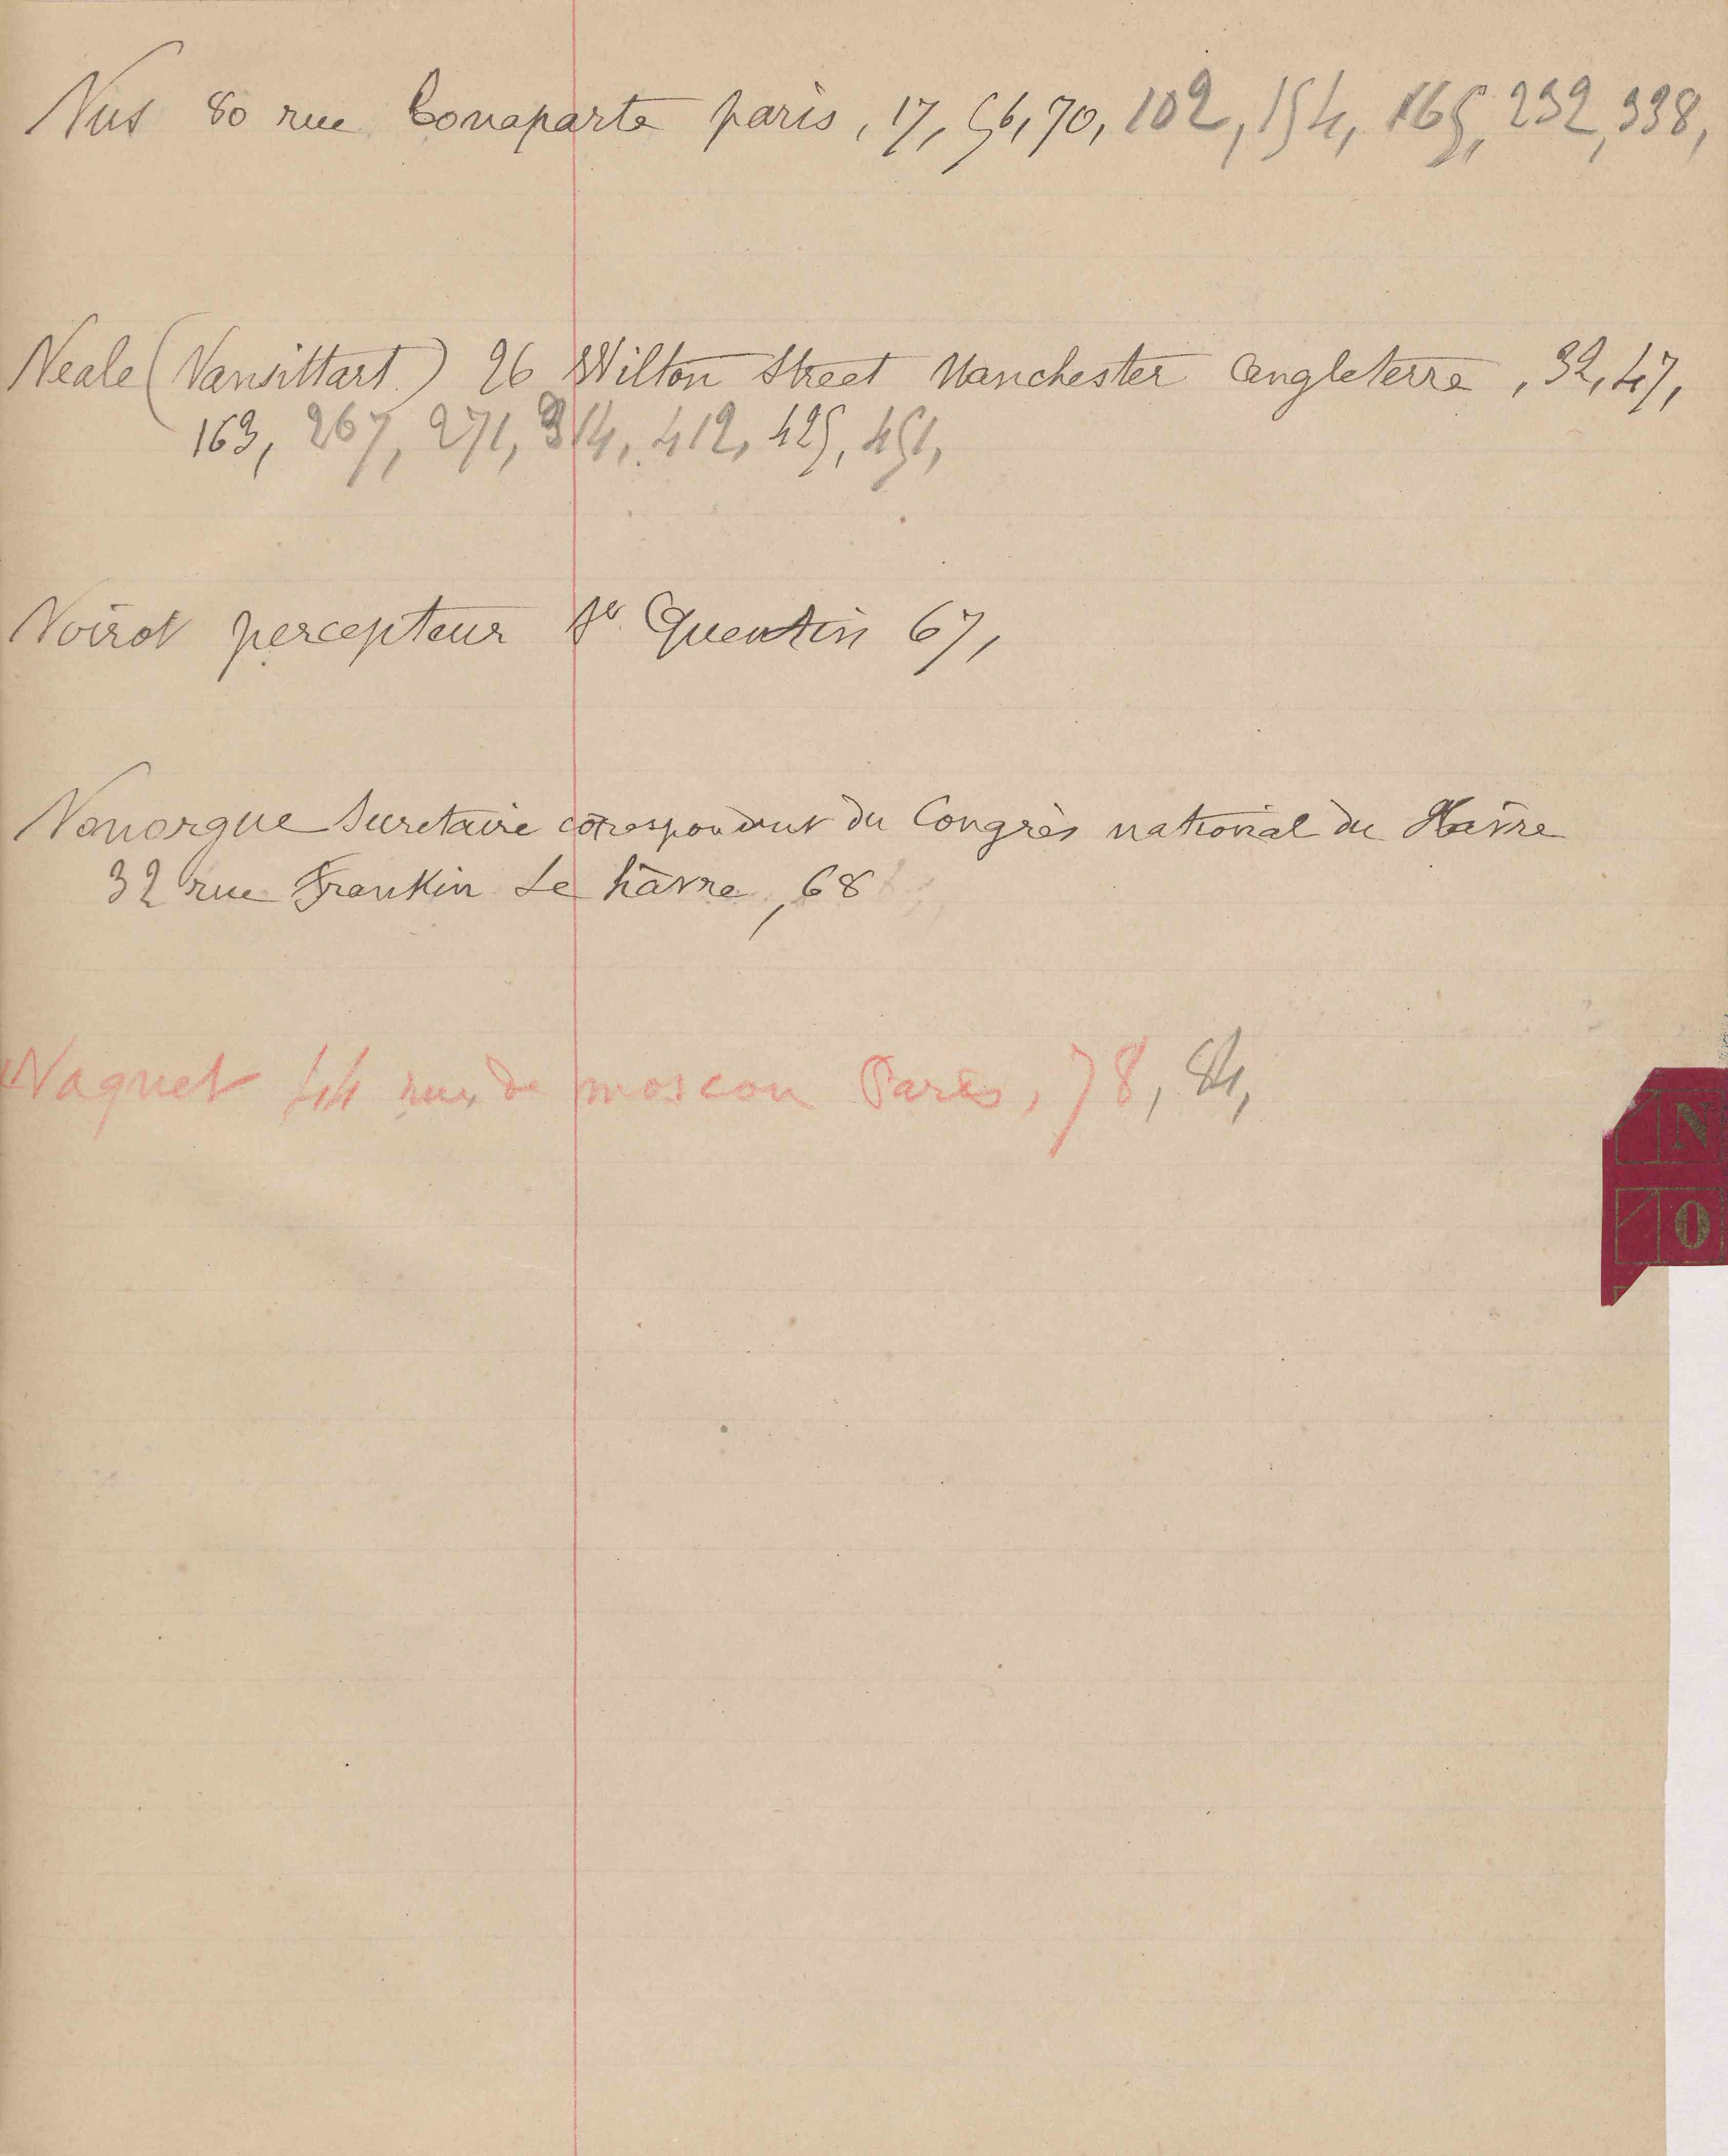 Nus 80 rue bonaparte paris, 17, 56, 70, 102, 154, 165, 232, 338,
Neale (Vansittart) 26 Wilton Street Manchester angleterre, 32, 47,
163, 267, 271, 314, 412, 425, 451,
Noirot percepteur St Quentin 67,
Nonorgue Secretaire correspondant du Congrès national du Havre
32 rue Frankin Le hâvre, 68
Naquet 44 rue de moscou Paris, 78, 84,
N
O